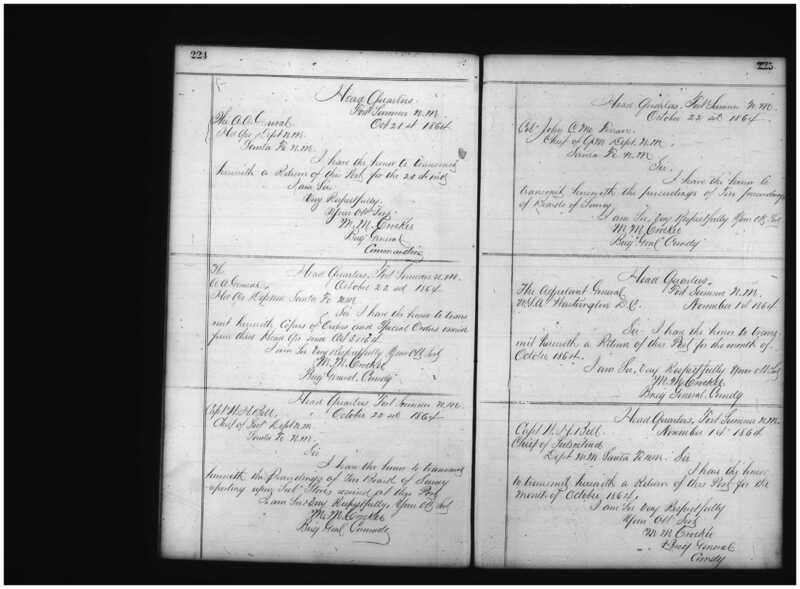 224
Head Quarters
Fort Sumner N.M.
Oct 21st 1864
The A.A. General
Hd Qrs Dept N.M.
Santa Fe N.M.
I have the honor to transmit
herewith a Return of this Post for the 20th inst
I am Sir
Very Respectfully
Your Obt Svt
M. M. Crocker
Brig General
Commanding
The
A. A. General
Head Quarters, Fort Sumner N.M.
October 22nd 1864
Hd Qrs Dept N.M. Santa Fe N.M.
Sir I have the honor to trans
mit herewith Copies of Orders and Special Orders issued
from these Head Qrs
I am Sir Very Respectfully Your Obt Svt
M. M. Crocker
Brig General, Comdg
Head Quarters Fort Sumner N.M.
October 22nd 1864
Capt N. H. Bell
Chief of Dept N.M.
Santa Fe N.M.
Sir
I have the honor to transmit
herewith the Proceedings of Board of Survey
upon Stores at this Post
I am Sir Very Respectfully, Your Obt Svt
M. M. Crocker
Brig Genl Comndg
225
Head Quarters, Fort Sumner N.M.
October 22nd 1864
Col John C. Mc
Chief Q.M. Dept. N.M.
Santa Fe N.M.
Sir
I have the honor to
transmit herewith the proceedings of
of Boards of Survey
I am Sir, Very Respectfully Your Obt Svt
M. M. Crocker
Brig Genl Comdg
Head Quarters,
Fort Sumner N.M.
November 1st 1864
The Adjutant General
U.S.A. Washington D.C.
Sir I have the honor to trans
mit herewith a Return of this Post for the month of
October 1864.
I am Sir, Very Respectfully Your Obt Svt
M. M. Crocker
Brig General, Comdg
Head Quarters, Fort Sumner N.M.
November 1st 1864
Capt N. H. Bell
Chief of Subsistence
Dept N.M. Santa Fe N.M. Sir
I have the honor
to transmit herewith a Return of this Post for the
month of October 1864.
I am Sir Very Respectfully
Your Obt Svt
M. M. Crocker
Brig General
Comdg